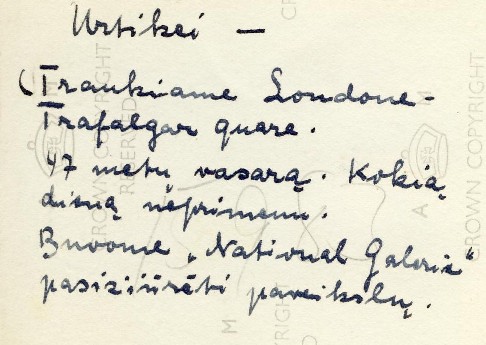 Urtikei —
(Traukiame Londone-
Trafalgar quare.
47 metų vasarą. Kokią
dieną neprimenu.
Buvome „National Galerie“
pasižiūrėti paveikslų.
CROWN COPYRIGHT
RESERVED
CROWN COPYRIGHT